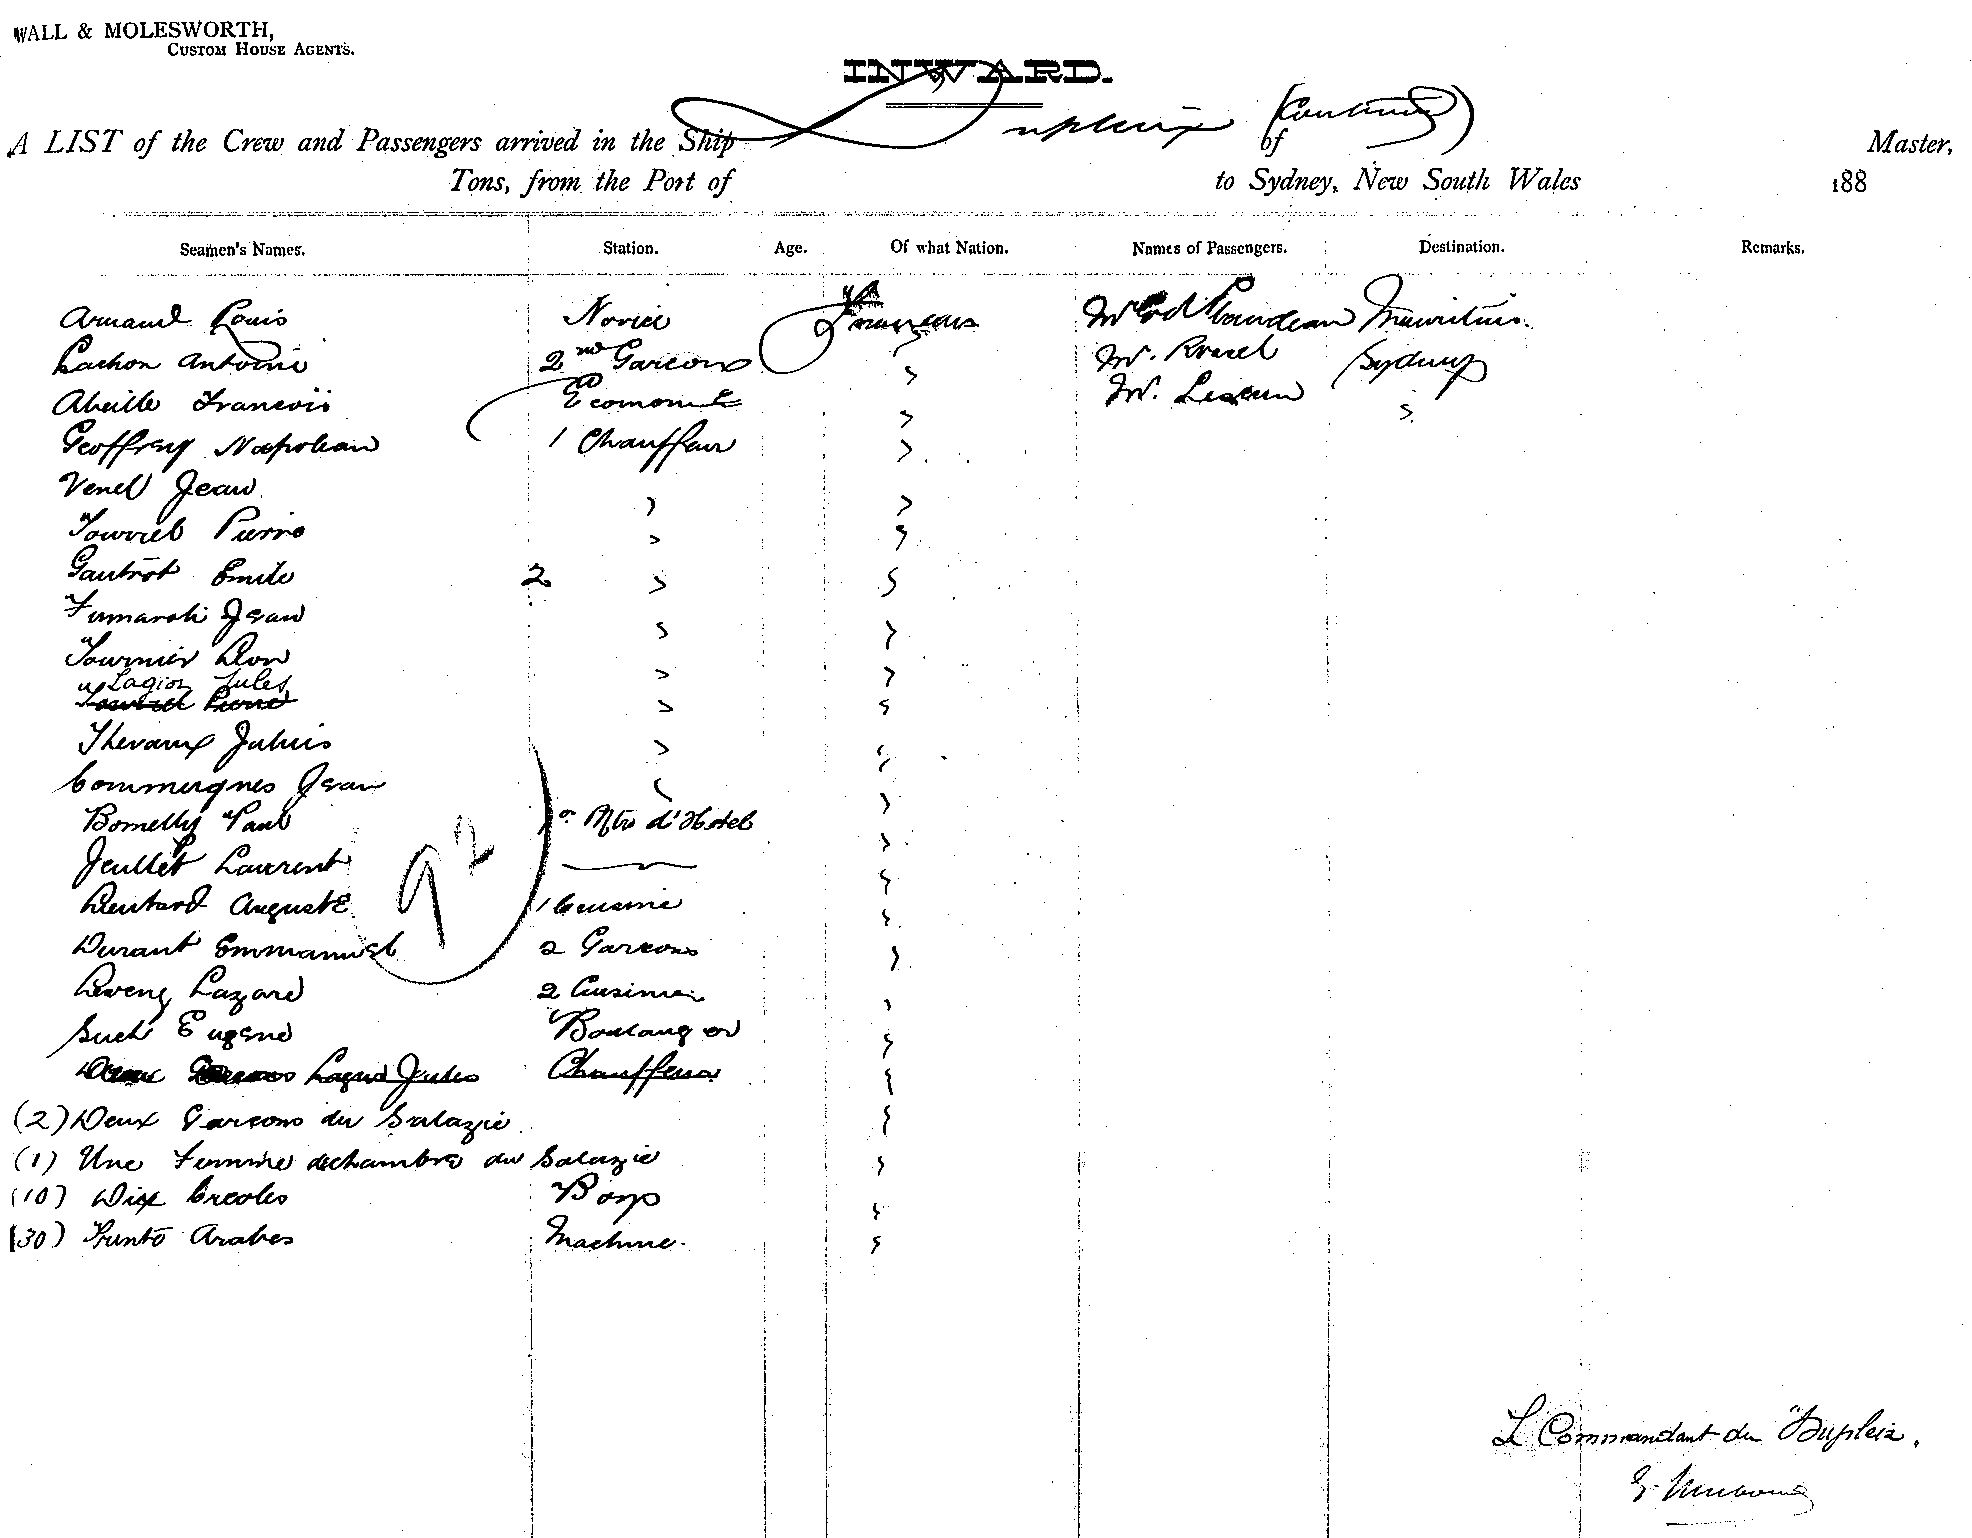 WALL & MOLESWORTH,
CUSTOM HOUSE AGENTS.
INWARD.
A LIST of the Crew and Passengers arrived in the Ship Dupleix (Continued) of Master,
Tons, from the Port of to Sydney, New South Wales 188
Seamen's Names. Station. Age. Of what Nation. Names of Passengers. Destination. Remarks.
Armand Louis Novice Français Mauritius.
Lachon Antoine 2nd Garcon " Mr. Sydney
Abeille Francois Econome " Mr. "
Geoffrey Napoleon 1 Chauffeur "
Venel Jean " "
Pierre " "
Gautrot Emile 2 " "
Fumaroli Jean " "
Fournier Leon " "
Lagier Jules
" "
Jean " "
Paul 1er Mtre d'Hotel "
Laurent "
Auguste 1 Cuisine "
Durant Emmanuel 2 Garcons "
92
Lazare 2 Cuisinier "
Such Eugene Boulanger "
Jules Chauffeur "
(2) Deux Garcons du Salazie "
(1) Une Femme de chambre du Salazie "
(10) Dix Creoles Boys "
(30) Trente Arabes Machine. "
L Commandant du Dupleix.